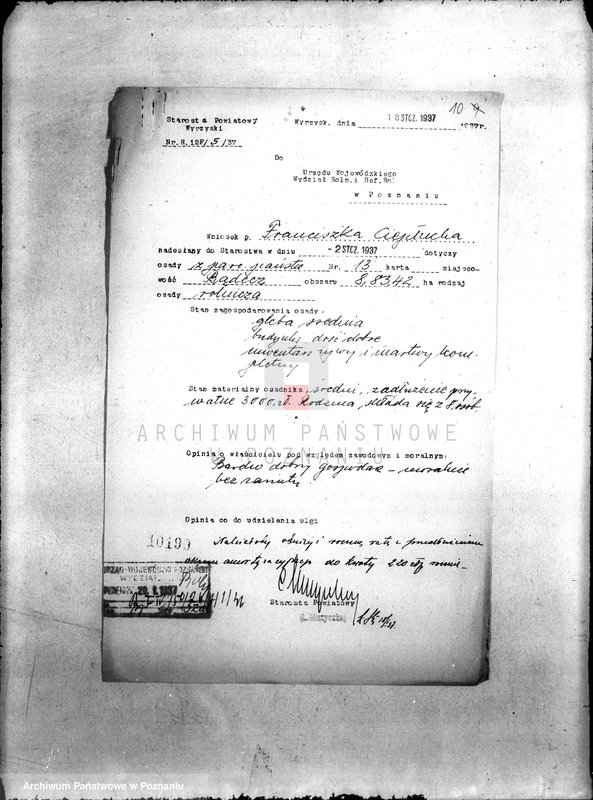 10
Starosta Powiatowy
Wyrzyski
Wyrzysk, dnia 18 STCZ. 1937 1937r.
Nr.R.12F/5/37
Do
Urzędu Wojewódzkiego
Wydział Roln.i Ref.Rol
w Poznaniu
Wniosek p. Franciszka Cieplucha
nadesłany do Starostwa w dniu - 2 STCZ. 1937 dotyczy
osady z parc. państw Nr. 13 karta miejsco-
wość Bądecz obszaru 8,83,42 ha rodzaj
osady rolnicza
Stan zagospodarowania osady:
gleba średnia
budynki dość dobre
inwentarz żywy i martwy kom-
pletny
Stan materialny osadnika, średni, zadłużenie pry-
watne 3000 zł. Rodzina składa się z 8 osób
ARCHIWUM PAŃSTWOWE
W POZNANIU
Opinia o właścicielu pod względem zawodowym i moralnym:
Bardzo dobry gospodarz - moralnie
bez zarzutu
Opinia co do udzielenia ulgi
10199
Należałoby obniżyć roczną ratę z przedłużeniem
okresu amortyzacyjnego do kwoty 220 zł
URZĄD WOJEWÓDZKI POZNAŃSKI
WYDZIAŁ
20. 1. 1937
Starosta Powiatowy
(L. Muzyczka)
Archiwum Państwowe w Poznaniu